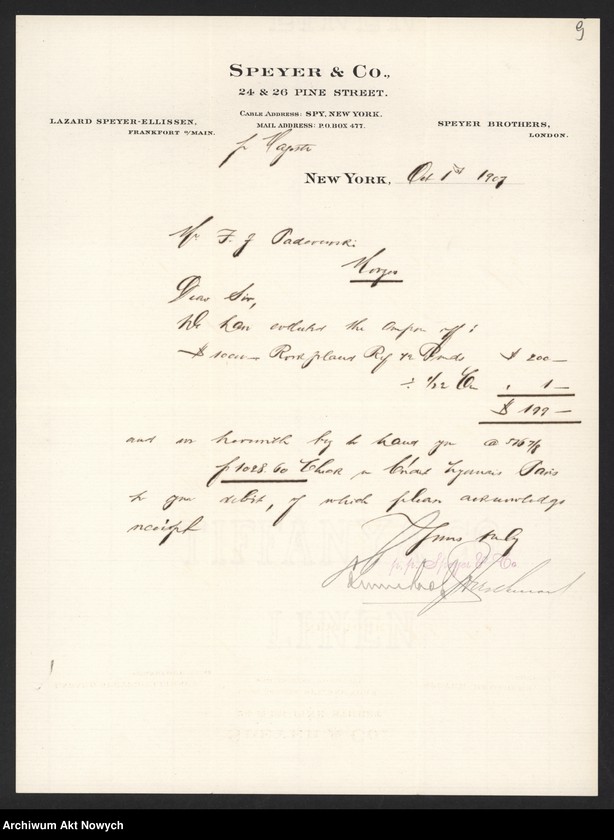 9
SPEYER & CO.,
24 & 26 PINE STREET.
CABLE ADDRESS: SPY, NEW YORK.
MAIL ADDRESS: P.O. BOX 477.
LAZARD SPEYER-ELLISSEN,
FRANKFORT o/MAIN.
SPEYER BROTHERS,
LONDON.
NEW YORK, Oct 1st 1907
Mr F. J Paderewski
Morges
Dear Sir,
We have collected the coupon off:
$ 10000— Rock Island Rfg 4% Bonds $ 200—
1—
$ 199—
and we herewith beg to hand you @ 516 7/8
f 1028.60 Check on Crédit Lyonnais Paris
to your debit, of which please acknowledge
receipt
Yours truly
p.p. Speyer & Co
LINEN
Archiwum Akt Nowych